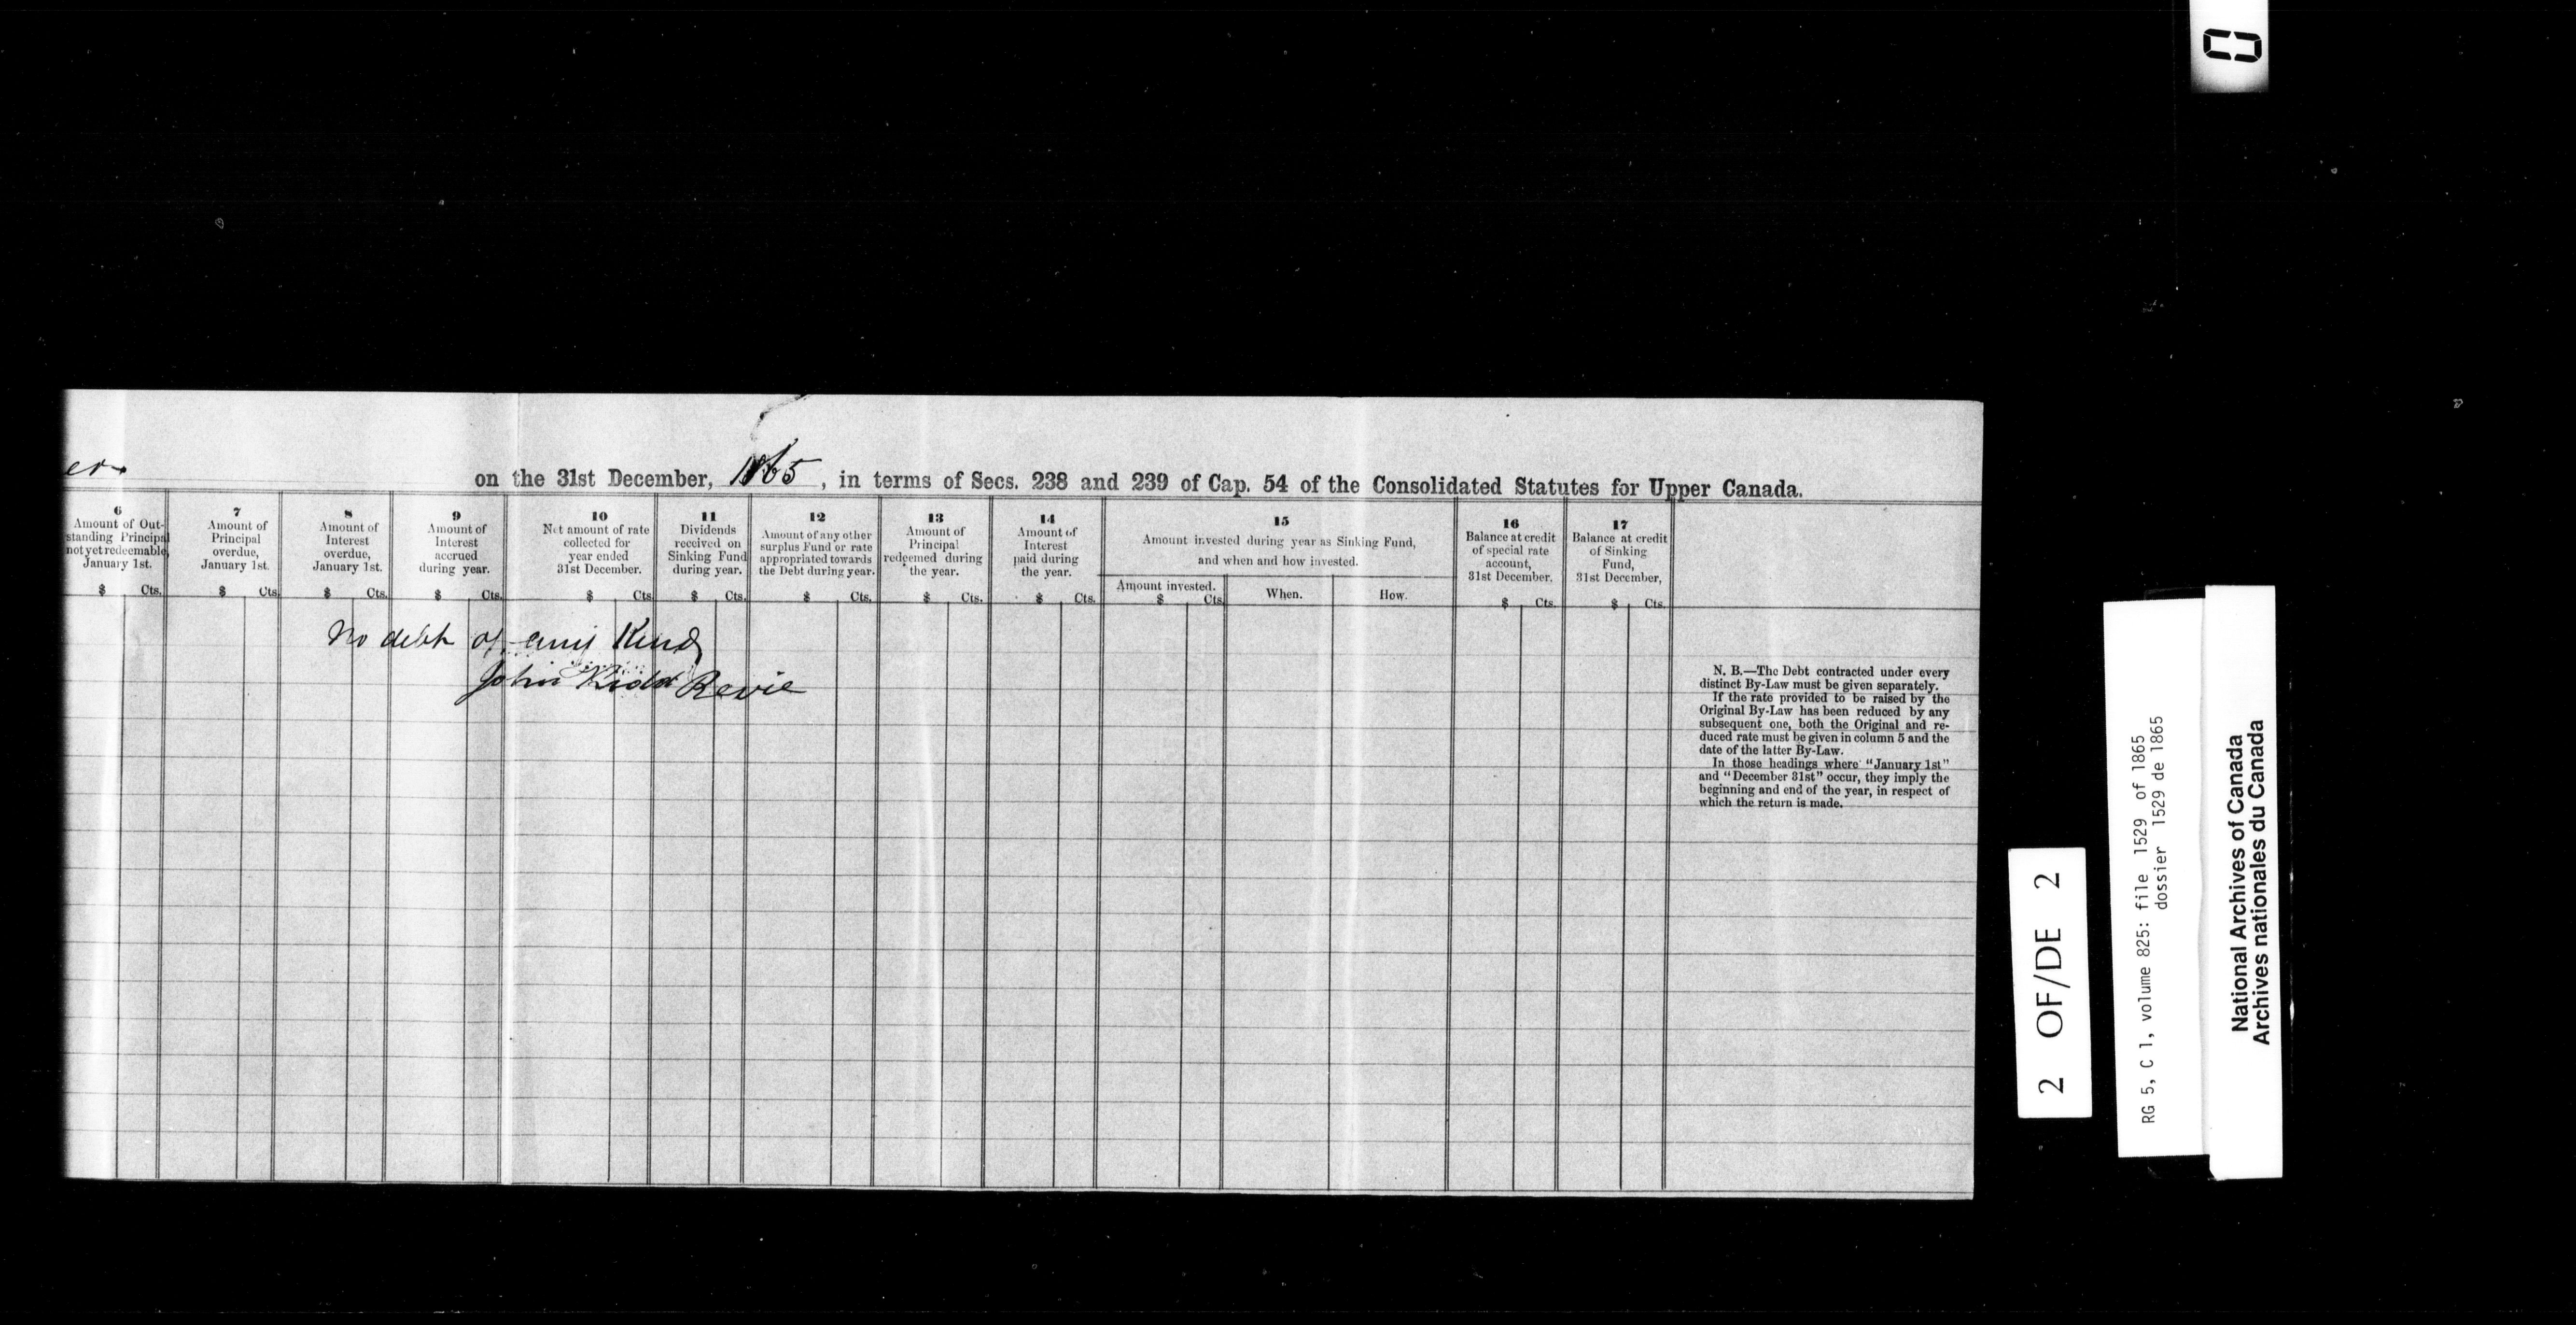 on the 31st December, 1865, in terms of Secs. 238 and 239 of Cap. 54 of the Consolidated Statutes for Upper Canada.
6
Amount of Out-
standing Principal
not yet redeemable,
January 1st.
$ Cts.
7
Amount of
Principal
overdue,
January 1st.
$ Cts.
8
Amount of
Interest
overdue,
January 1st.
$ Cts.
9
Amount of
Interest
accrued
during year.
$ Cts.
10
Net amount of rate
collected for
year ended
31st December.
$ Cts.
11
Dividends
received on
Sinking Fund
during year.
$ Cts.
12
Amount of any other
surplus Fund or rate
appropriated towards
the Debt during year.
$ Cts.
13
Amount of
Principal
redeemed during
the year.
$ Cts.
14
Amount of
Interest
paid during
the year.
$ Cts.
15
Amount invested during year as Sinking Fund,
and when and how invested.
Amount invested.
$ Cts.
When.
How.
16
Balance at credit
of special rate
account,
31st December.
$ Cts.
17
Balance at credit
of Sinking
Fund,
31st December,
$ Cts.
No debt of any Kind
John Kidd Revie
N. B.—The Debt contracted under every
distinct By-Law must be given separately.
If the rate provided to be raised by the
Original By-Law has been reduced by any
subsequent one, both the Original and re-
duced rate must be given in column 5 and the
date of the latter By-Law.
In those headings where "January 1st"
and "December 31st" occur, they imply the
beginning and end of the year, in respect of
which the return is made.
2 OF/DE 2
RG 5, C 1, volume 825: file 1529 of 1865
dossier 1529 de 1865
National Archives of Canada
Archives nationales du Canada